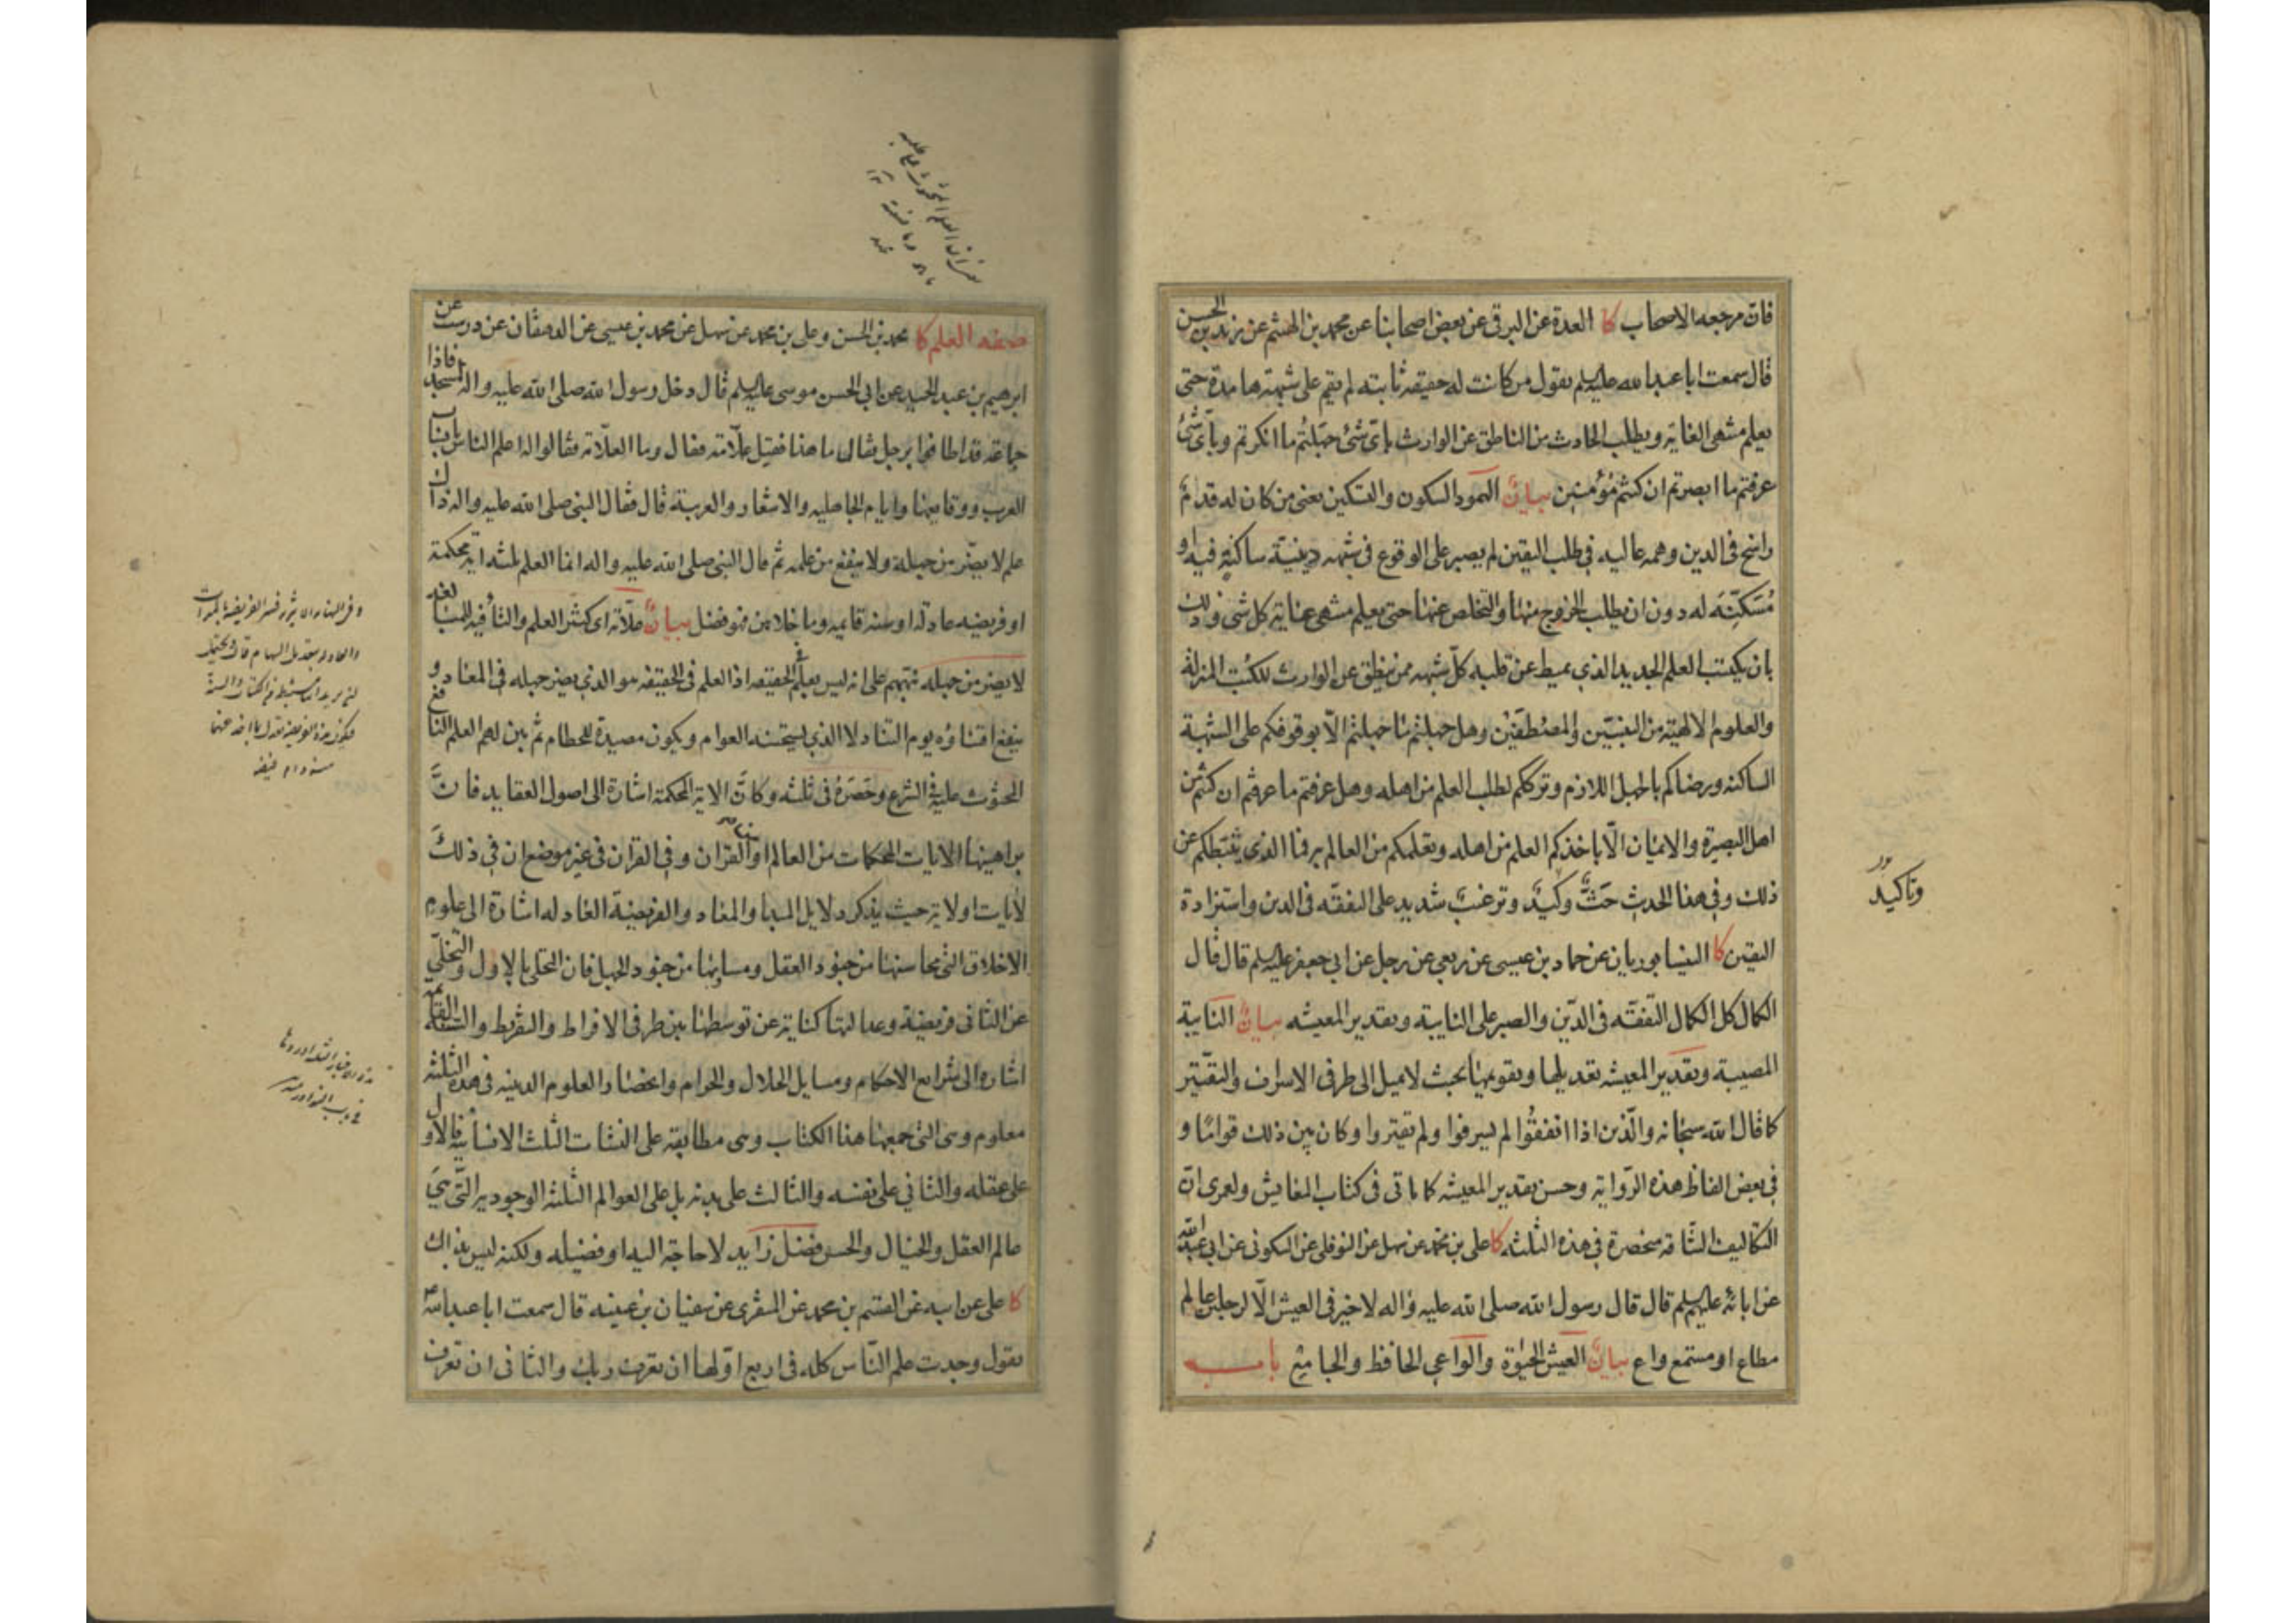 فان مرجعه الاصحاب كا العدة عن البرقى عن بعض اصحابنا عن محمد بن الهيثم عن زيد بن الحسن
قال سمعت ابا عبد الله عليه السلم يقول من كانت له حقيقه ثابته لم يقم على شبهة هامدة حتى
يعلم منتهى الغاية ويطلب الحادث من الناطق عن الوارث باى شئ جهلتم ما انكرتم وباى شئ
عرفتم ما ابصرتم ان كنتم مؤمنين بيان الهمود السكون والتسكين يعنى من كان له قدم
راسخ فى الدين وهمه عاليه فى طلب اليقين لم يصبر على الوقوع فى شبهه دينية ساكنة فيه او
مُسَكّنة له دون ان يطلب الخروج منها والتخلص عنها حتى يعلم منتهى غاية كل شى وذلك
بان يكتسب العلم الجديد الذى يميط عن قلبه كل شبهه ممن ينطق عن الوارث للكتب المنزلة
والعلوم الالهية من النبيين والمصطفين وهل جهلتم ما جهلتم الّا بوقوفكم على الشبهة
الساكنه ورضاكم بالجهل اللازم وترككم لطلب العلم من اهله وهل عرفتم ما عرفتم ان كنتم من
اهل البصيرة والايمان الّا باخذكم العلم من اهله وتعلمكم من العالم برفنا الذى يثبطكم عن
ذلك وفى هذا الحديث حَثٌّ وكيدٌ وترغيب شديد على التفقه فى الدين واستزادة
اليقين كا النيسابوريان عن حماد بن عيسى عن ربعى عن رجل عن ابى جعفر عليه السلم قال قال
الكمال كل الكمال التفقه فى الدّين والصبر على النايبة وتقدير المعيشه بيان النايبة
المصيبة وتقدير المعيشه تعديلها وتقويمها بحيث لا يميل الى طرفى الاسراف والتقتير
كما قال الله سبحانه والّذين اذا انفقوا لم يسرفوا ولم يقتروا وكان بين ذلك قوامًا و
فى بعض الفاظ هذه الرّواية وحسن تقدير المعيشه كما ياتى فى كتاب المعايش ولعمرى انّ
التكاليف الشاقه منحصرة فى هذه الثلثه كا على بن محمد عن سهل عن النوفلى عن السكونى عن ابى عبد الله
عن ابائه عليهم السلم قال قال رسول الله صلى الله عليه واله لا خير فى العيش الّا لرجلين عالم
مطاع او مستمع واع بيان العيش الحيوة والواعى الحافظ والجامع باب
وتاكيد
صفه العلم كا محمد بن الحسن وعلى بن محمد عن سهل عن محمد بن عيسى عن الدهقان عن درست عن
ابرهيم بن عبد الحميد عن ابى الحسن موسى عليه السلم قال دخل رسول الله صلى الله عليه واله المسجد فاذا
جماعة قد اطافوا برجل فقال ما هذا فقيل علّامة فقال وما العلّامة فقالوا له اعلم الناس بانساب
العرب ووقايعها وايام الجاهليه والاشعار والعربية قال فقال النبى صلى الله عليه واله ذاك
علم لا يضرّ من جهله ولا ينفع من علمه ثم قال النبى صلى الله عليه واله انما العلم ثلثه اية محكمة
او فريضه عادلة او سنه قايمه وما خلاهن فهو فضل بيان علّامة اى كثير العلم والتا فيه للمبالغه
لا يضر من جهله نبّههم على انه ليس بعلم فى الحقيقه اذ العلم فى الحقيقه هو الذى يضر جهله فى المعاد و
ينفع اقتناؤه يوم التناد لا الذى يستحسنه العوام ويكون مصيدة للحطام ثم بين لهم العلم النافع
المحثوث عليه فى الشرع وحَصَرَهُ فى ثلثه وكانّ الاية المحكمة اشارة الى اصول العقايد فانّ
براهينها الايات المحكمات من العالم او من القران وفى القران فى غير موضع ان فى ذلك
لأيات او لاية حيث يذكر دلايل المبدا والمعاد والفريضة العادله اشارة الى علوم
الاخلاق التى محاسنها من جنود العقل ومساويها من جنود الجهل فان التحلى بالاول والتخلّى
عن الثانى فريضة وعدالتها كناية عن توسطها بين طرفى الافراط والتفريط والسنة القايمه
اشاره الى شرايع الاحكام ومسايل الحلال والحرام وانحصار العلوم الدينيه فى هذه الثلثه
معلوم وهى التى جمعها هذا الكتاب وهى مطابقه على النشات الثلث الانسانية فالاول
على عقله والثانى على نفسه والثالث على بدنه بل على العوالم الثلثه الوجوديه التى هى
عالم العقل والخيال والحس فضل زايد لا حاجة اليه او فضيله ولكنه ليس بذاك
كا على عن ابيه عن القسم بن محمد عن المنقرى عن سفيان بن عيينه قال سمعت ابا عبد الله ع
يقول وجدت علم الناس كله فى اربع اوّلها ان تعرف ربك والثانى ان تعرف